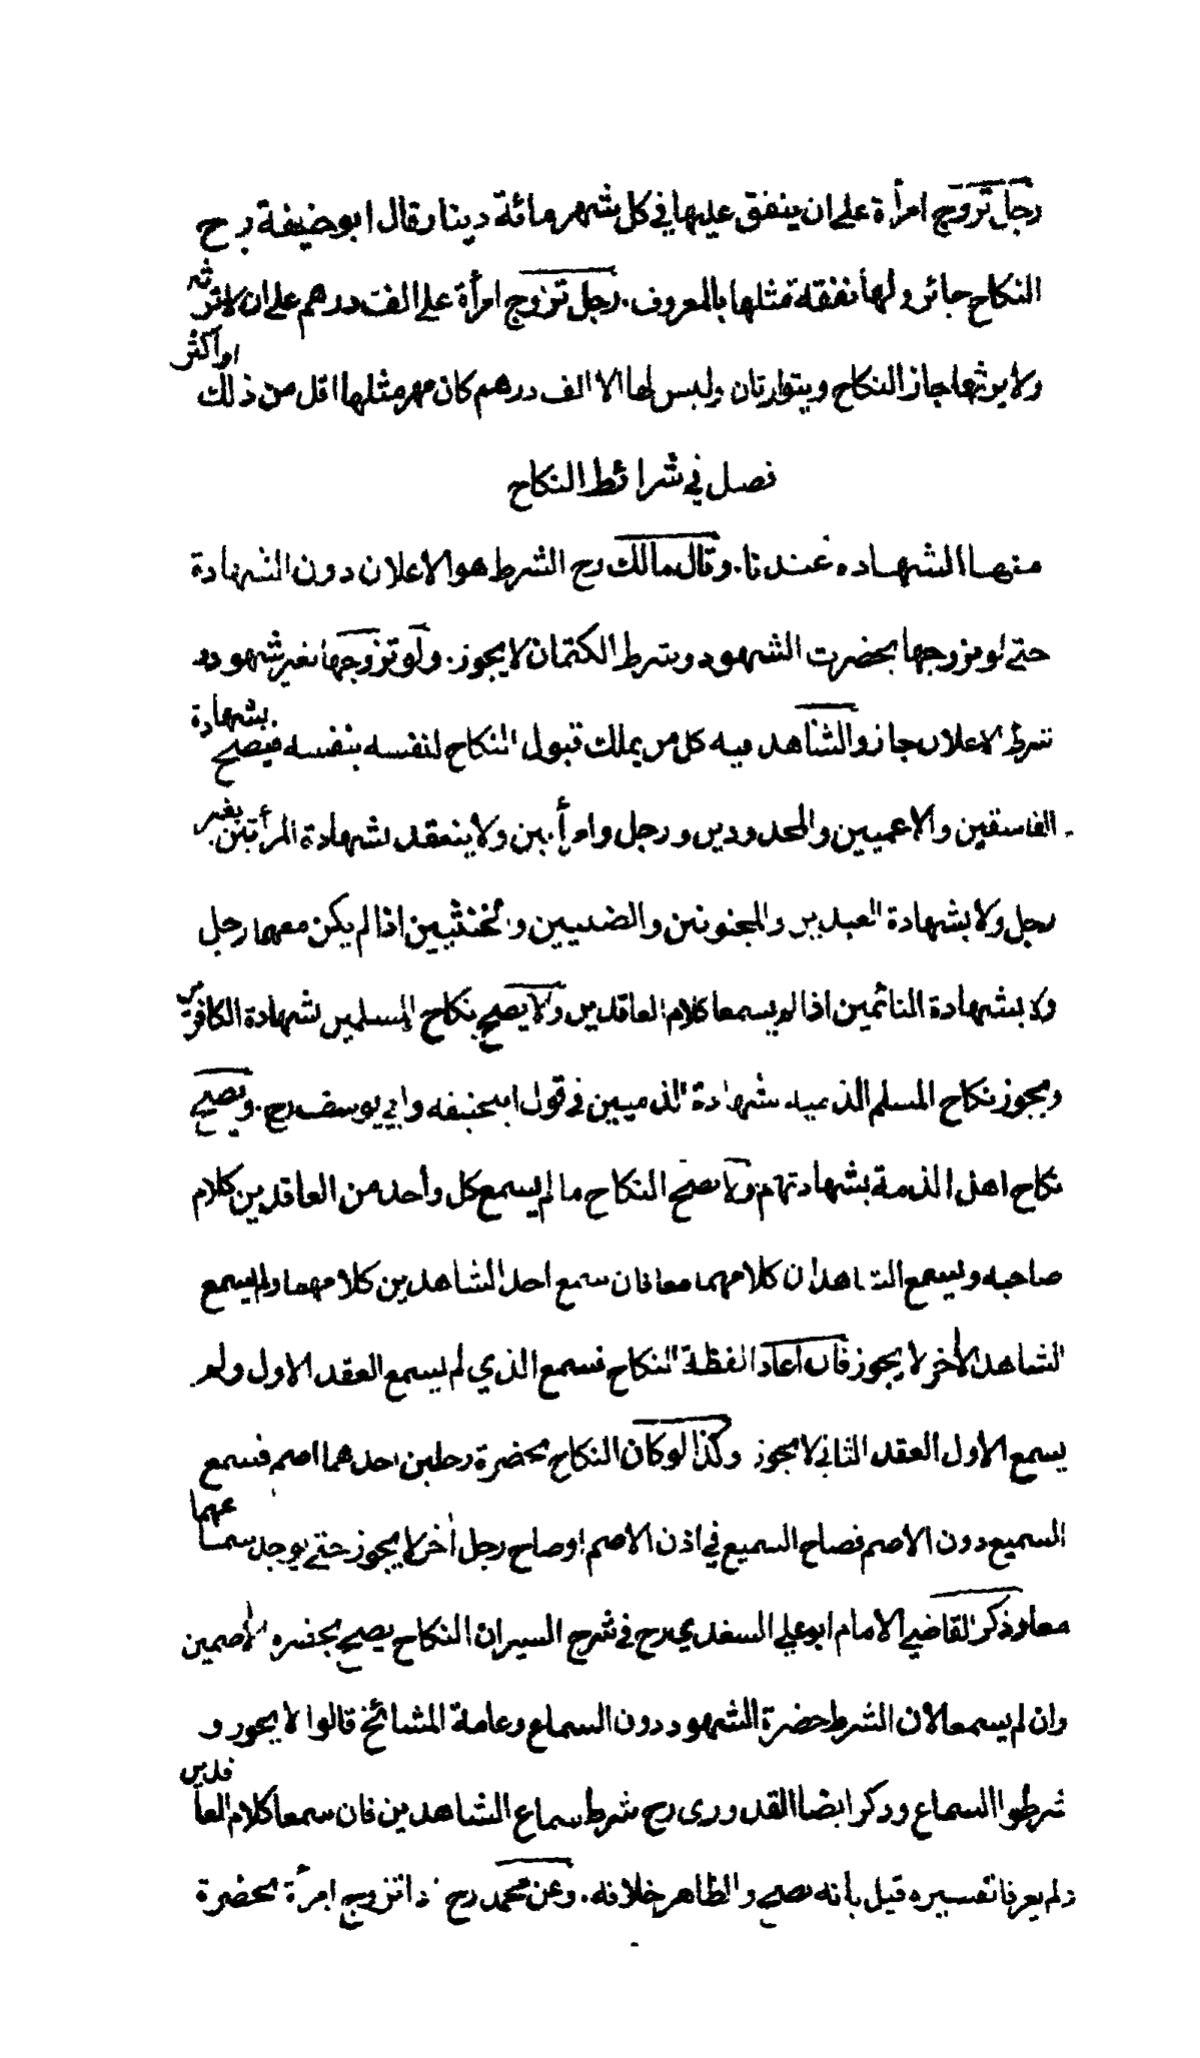 رجل تزوج امرأة على ان ينفق عليها في كل شهر مائة دينار قال ابو حنيفة رح
النكاح جائز ولها نفقة مثلها بالمعروف. رجل تزوج امرأة على الف درهم على ان لا ترثه
ولا يرثها جاز النكاح ويتوارثان وليس لها الا الف درهم كان مهر مثلها اقل من ذلك او اكثر
فصل في شرائط النكاح
منها الشهاده عندنا. وقال مالك رح الشرط هو الاعلان دون الشهادة
حتى لو تزوجها بحضرت الشهود وشرط الكتمان لا يجوز. ولو تزوجها بغير شهود
بشرط الاعلان جاز والشاهد فيه كل من يملك قبول النكاح لنفسه بنفسه فيصح بشهادة
الفاسقين والاعميين والمحدودين ورجل وامرأتين ولا ينعقد بشهادة المرأتين بغير
رجل ولا بشهادة العبدين والمجنونين والصبيين والخنثيين اذا لم يكن معهما رجل
ولا بشهادة النائمين اذا لم يسمعا كلام العاقدين ولا يصح نكاح المسلمين بشهادة الكافرين
ويجوز نكاح المسلم الذميه بشهادة الذميين في قول ابيحنيفه وابي يوسف رح. ويصح
نكاح اهل الذمة بشهادتهم ولا يصح النكاح ما لم يسمع كل واحد من العاقدين كلام
صاحبه ويسمع الشاهدان كلامهما معا فان سمع احد الشاهدين كلامهما ولم يسمع
الشاهد الأخر لا يجوز فان اعاد الفظة النكاح فسمع الذي لم يسمع العقد الاول ولم
يسمع الاول العقد الثاني لا يجوز وكذا لو كان النكاح بحضرة رجلين احدهما اصم فسمع
السميع دون الاصم فصاح السميع في اذن الاصم او صاح رجل أخر لا يجوز حتى يوجد سماعهما
معا وذكر القاضي الامام ابو علي السغدي رح في شرح السير ان النكاح يصح بحضره الأصمين
وان لم يسمعا لان الشرط حضرة الشهود دون السماع وعامة المشائخ قالوا لا يجوز و
شرطوا السماع وذكر ايضا القدوري رح شرط سماع الشاهدين فان سمعا كلام العاقدين
ولم يعرفا تفسيره قيل بانه يصح والظاهر خلافه. وعن محمد رح اذا تزوج امرأة بحضرة